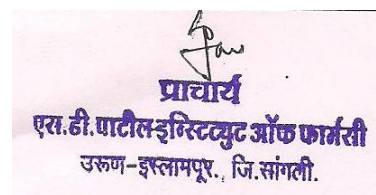 प्राचार्य
एस.डी.पाटील इन्स्टिट्युट ऑफ फार्मसी
उरूण-इस्लामपूर., जि.सांगली.